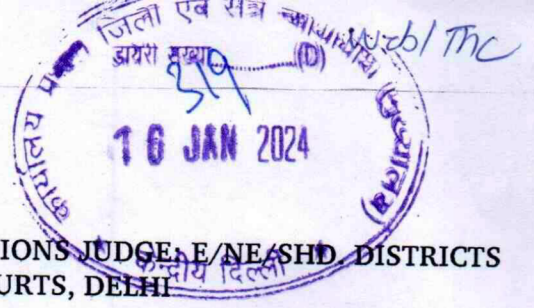 कार्यालय प्रधान जिला एवं सत्र न्यायाधीश (मुख्यालय)
डायरी संख्या..............(D)
319
16 JAN 2024
केन्द्रीय दिल्ली
IONS JUDGE: E/NE/SHD. DISTRICTS
URTS, DELHI